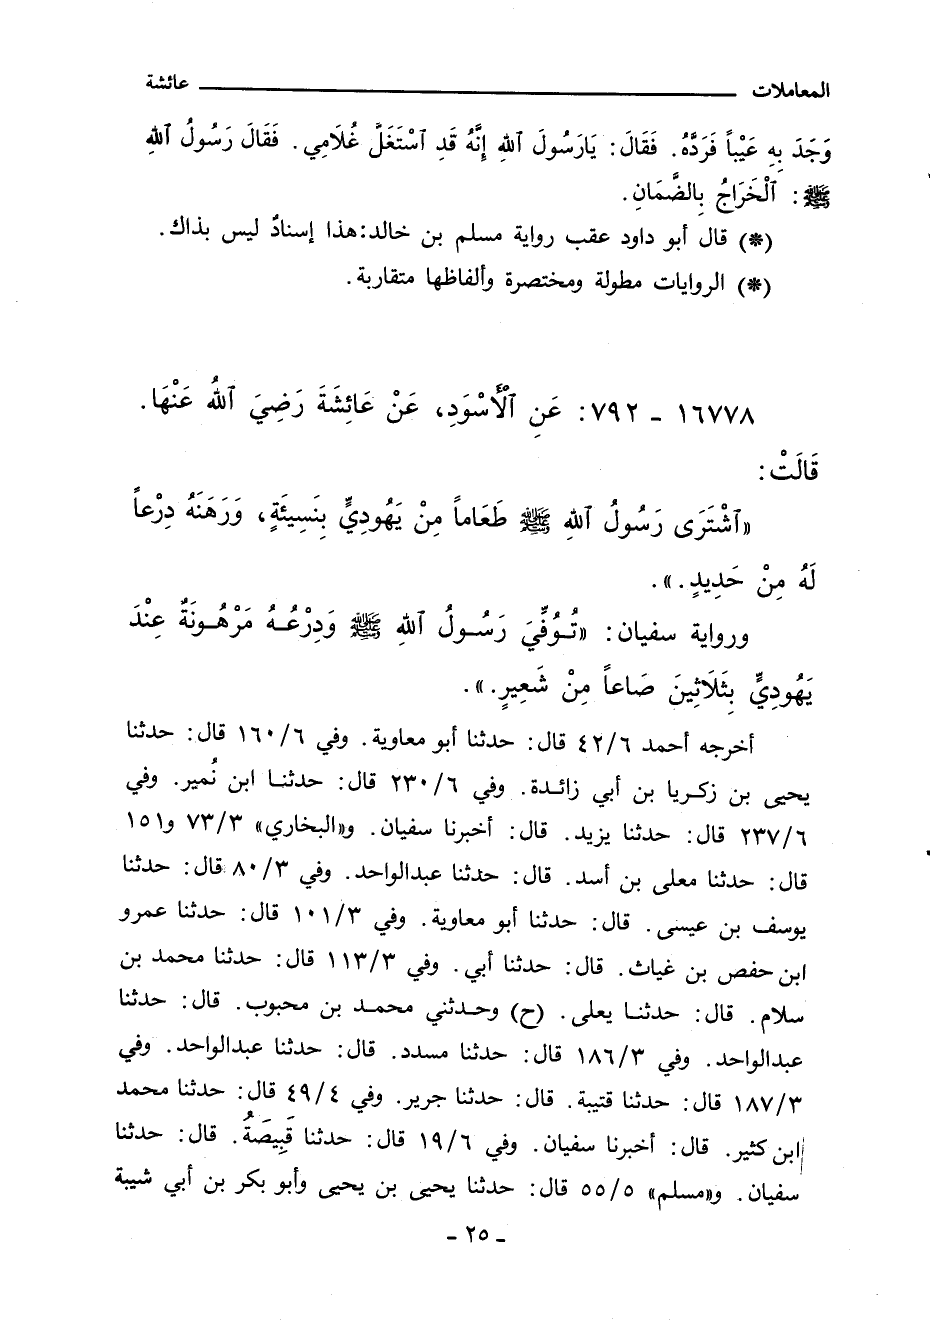 المعاملات ــــــــــــــــــــــــــــــــــــــ عائشة
وَجَدَ بِهِ عَيْباً فَرَدَّهُ. فَقَالَ: يَارَسُولَ ٱللهِ إِنَّهُ قَدِ ٱسْتَغَلَّ غُلَامِي. فَقَالَ رَسُولُ ٱللهِ
ﷺ: ٱلْخَرَاجُ بِالضَّمَانِ.
(*) قال أبو داود عقب رواية مسلم بن خالد:هذا إسنادٌ ليس بذاك.
(*) الروايات مطولة ومختصرة وألفاظها متقاربة.
١٦٧٧٨ - ٧٩٢: عَنِ ٱلْأَسْوَدِ، عَنْ عَائِشَةَ رَضِيَ ٱللهُ عَنْهَا.
قَالَتْ:
«ٱشْتَرَى رَسُولُ ٱللهِ ﷺ طَعَاماً مِنْ يَهُودِيٍّ بِنَسِيئَةٍ، وَرَهَنَهُ دِرْعاً
لَهُ مِنْ حَدِيدٍ.».
ورواية سفيان: «تُوُفِّيَ رَسُولُ ٱللهِ ﷺ وَدِرْعُهُ مَرْهُونَةٌ عِنْدَ
يَهُودِيٍّ بِثَلَاثِينَ صَاعاً مِنْ شَعِيرٍ.».
أخرجه أحمد ٤٢/٦ قال: حدثنا أبو معاوية. وفي ١٦٠/٦ قال: حدثنا
يحيى بن زكريا بن أبي زائدة. وفي ٢٣٠/٦ قال: حدثنا ابن نُمير. وفي
٢٣٧/٦ قال: حدثنا يزيد. قال: أخبرنا سفيان. و«البخاري» ٧٣/٣ و١٥١
قال: حدثنا معلى بن أسد. قال: حدثنا عبدالواحد. وفي ٨٠/٣ قال: حدثنا
يوسف بن عيسى. قال: حدثنا أبو معاوية. وفي ١٠١/٣ قال: حدثنا عمرو
ابن حفص بن غياث. قال: حدثنا أبي. وفي ١١٣/٣ قال: حدثنا محمد بن
سلام. قال: حدثنا يعلى. (ح) وحدثني محمد بن محبوب. قال: حدثنا
عبدالواحد. وفي ١٨٦/٣ قال: حدثنا مسدد. قال: حدثنا عبدالواحد. وفي
١٨٧/٣ قال: حدثنا قتيبة. قال: حدثنا جرير. وفي ٤٩/٤ قال: حدثنا محمد
ابن كثير. قال: أخبرنا سفيان. وفي ١٩/٦ قال: حدثنا قَبِيصَةُ. قال: حدثنا
سفيان. و«مسلم» ٥٥/٥ قال: حدثنا يحيى بن يحيى وأبو بكر بن أبي شيبة
- ٢٥ -